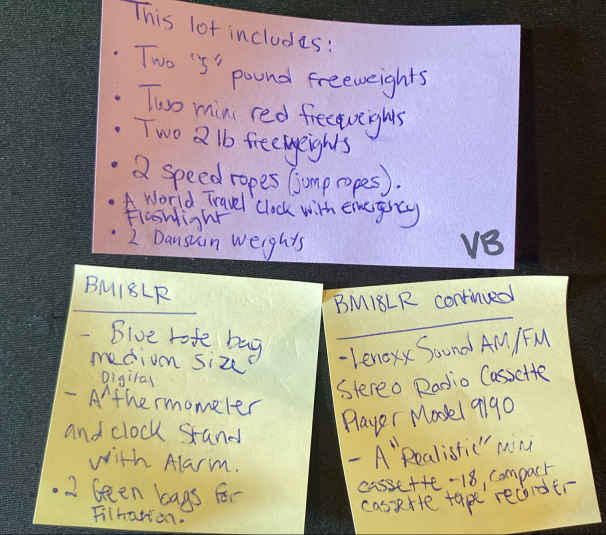 This lot includes:
• Two "5" pound freeweights
• Two mini red freeweights
• Two 2 lb freeweights
• 2 speed ropes (jump ropes).
• A World Travel clock with emergency
Flashlight
• 2 Danskin weights
VB
BM18LR
- Blue tote bag
medium size
Digital
- A ^ thermometer
and clock Stand
with Alarm.
• 2 Green bags for
Filtration.
BM18LR continued
- Lenoxx Sound AM/FM
Stereo Radio Cassette
Player Model 9190
- A "Realistic" Mini
cassette -18, compact
cassette tape recorder